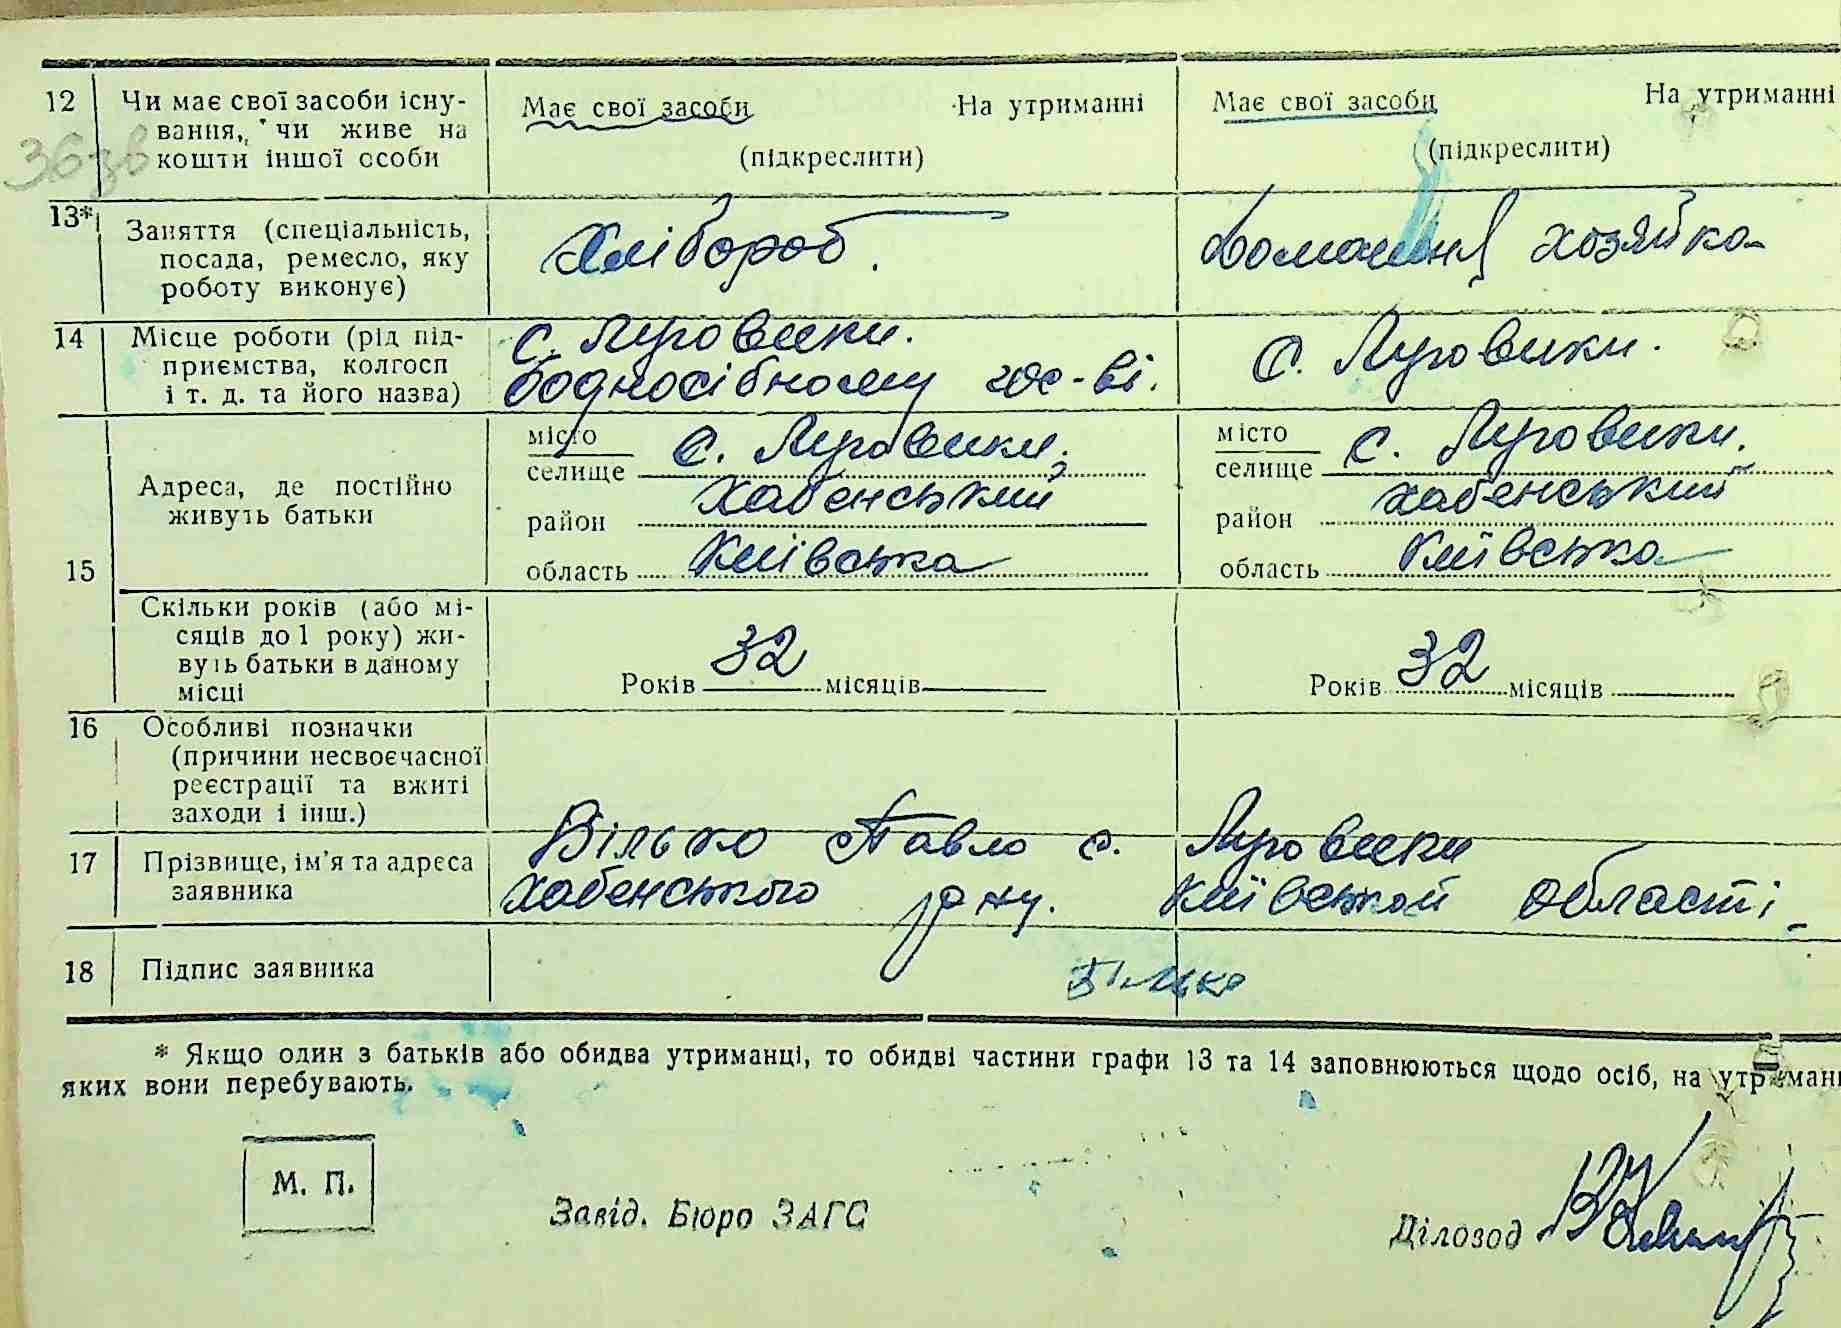 12 Чи має свої засоби існу- Має свої засоби На утриманні Має свої засоби На утриманні
вання, чи живе на
кошти іншої особи (підкреслити) (підкреслити)
36зв
13* Заняття (спеціальність, Хлібороб. Домашня хозяйка
посада, ремесло, яку
роботу виконує)
14 Місце роботи (рід під- с. Луговики. с. Луговики.
приємства, колгосп
і т. д. та його назва) Водносібному гос-ві.
місто с. Луговики, місто с. Луговики,
селище селище
Адреса, де постійно район Хабенський район Хабенський
живуть батьки
15 область Київська область Київська
Скільки років (або мі-
сяців до 1 року) жи-
вуть батьки в даному Років 32 місяців Років 32 місяців
місці
16 Особливі позначки
(причини несвоєчасної
реєстрації та вжиті
заходи і інш.)
17 Прізвище, ім'я та адреса Вілько Павло с. Луговики
заявника Хабенського р-ну. Київської області
18 Підпис заявника Вілько
* Якщо один з батьків або обидва утриманці, то обидві частини графи 13 та 14 заповнюються щодо осіб, на утриман
яких вони перебувають.
М. П.
Завід. Бюро ЗАГС
Діловод